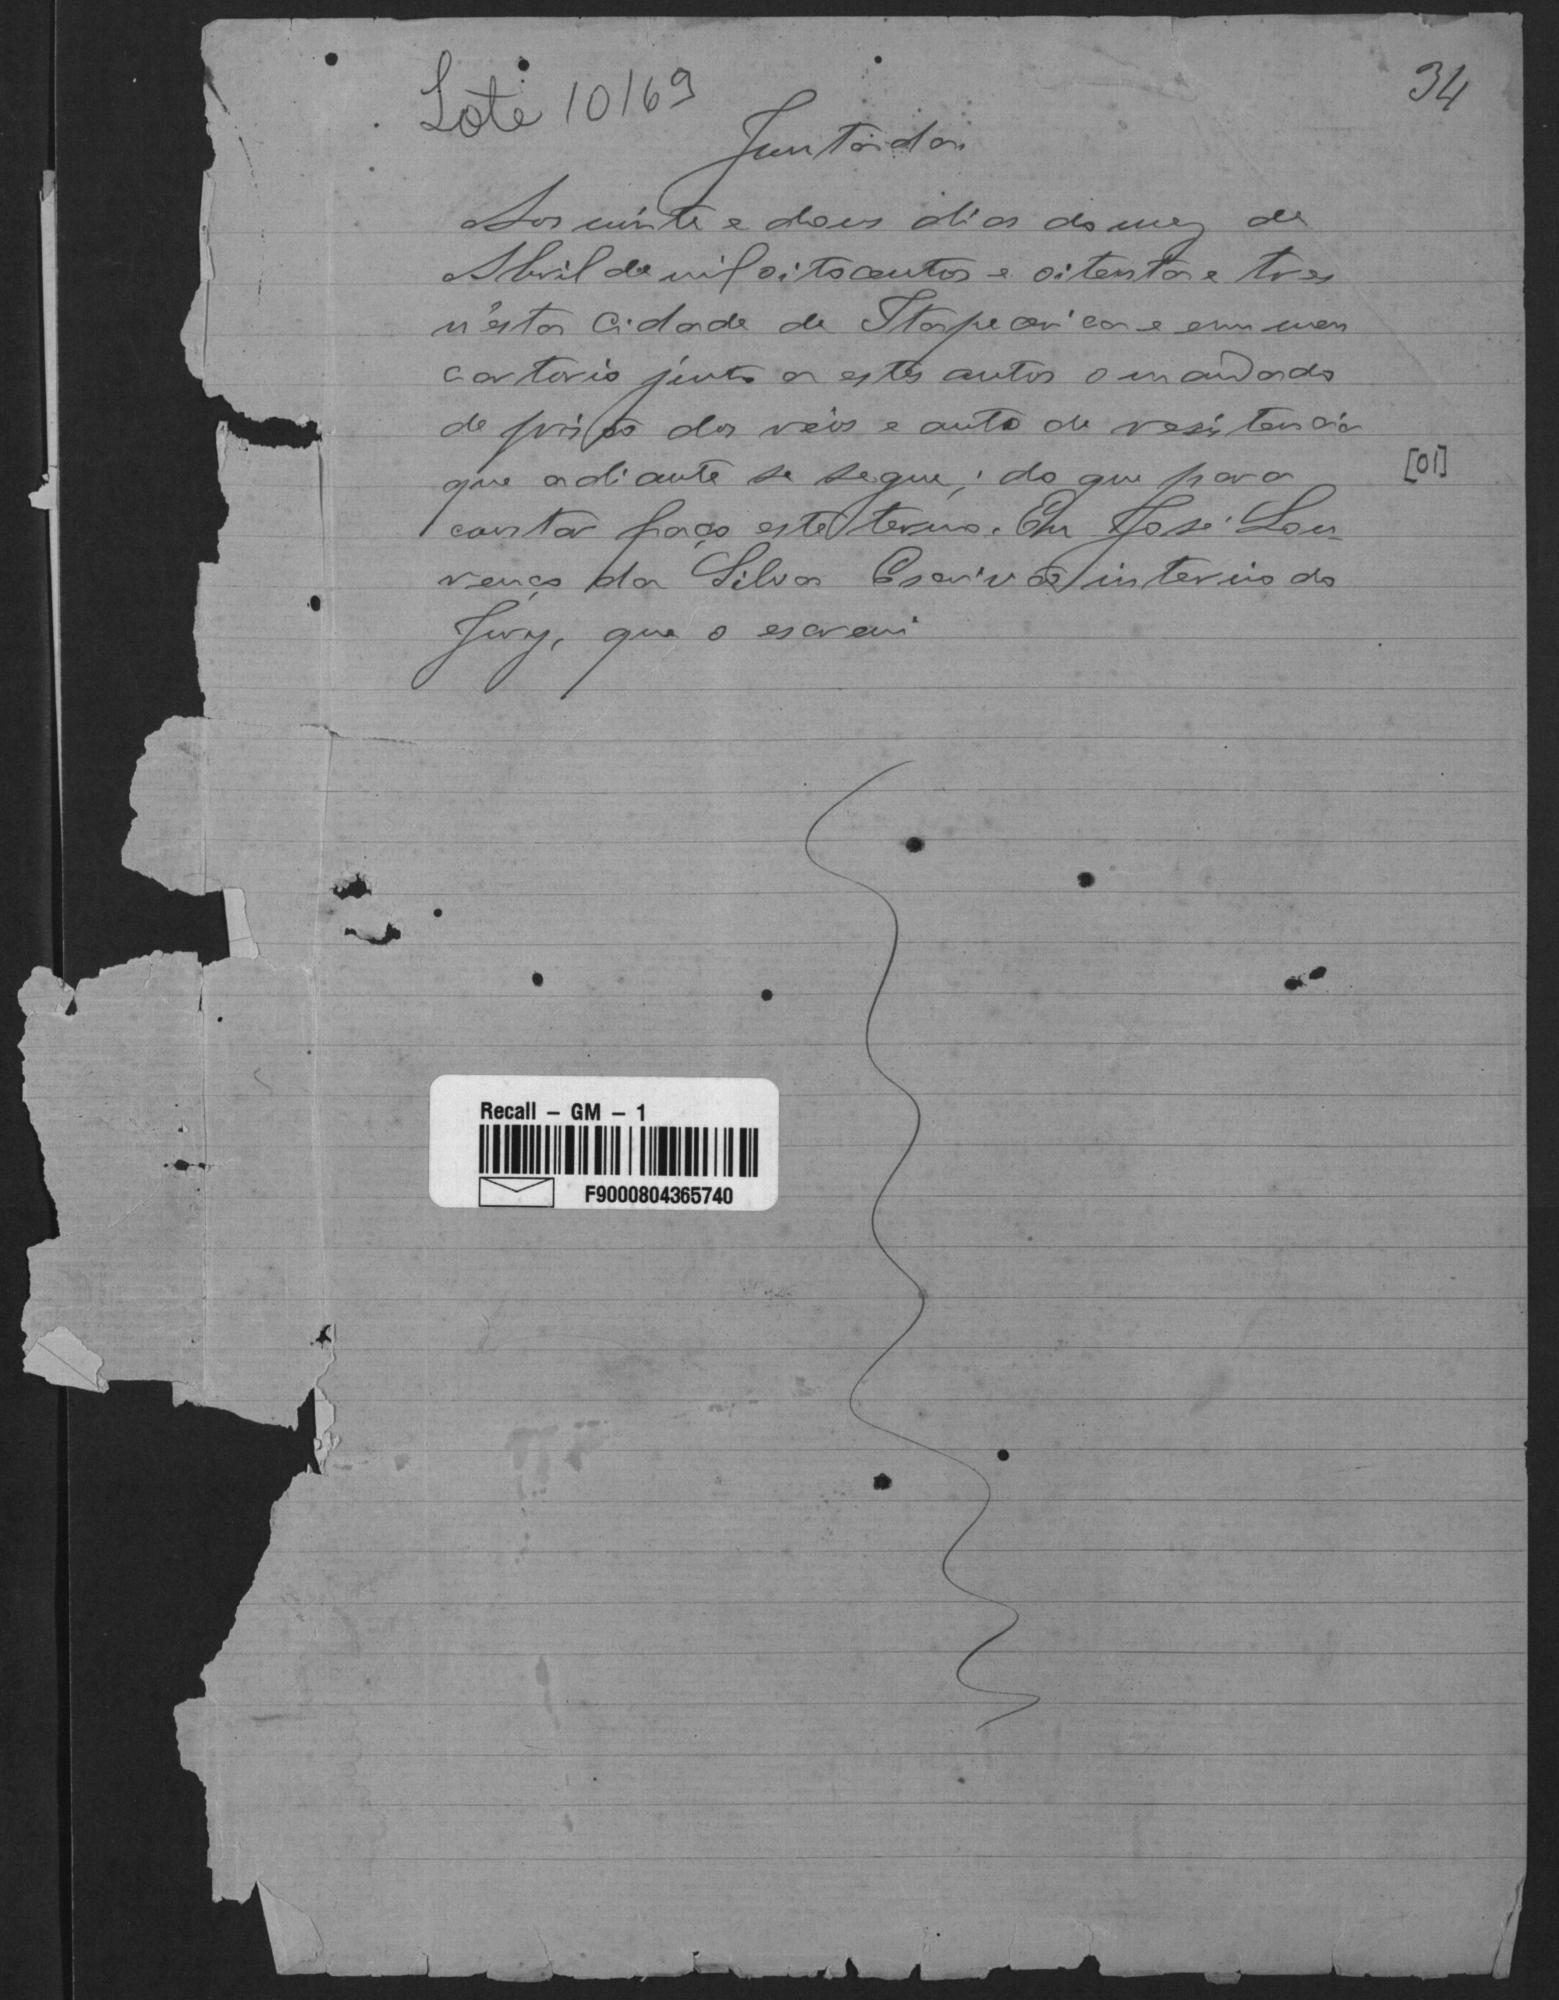 Lote 10169
34
Juntada.
Aos vinte e dous dias do mez de
Abril de mil oitocentos e oitenta e tres
n'esta Cidade de Itapecerica e em meu
cartorio junto a estes autos o mandado
de prisão dos réos e auto de resistencia
que adiante se segue; do que para
[01]
constar faço este termo. Eu José Lou-
renço da Silva Escrivão interino do
Jury, que o escrevi
Recall – GM – 1
F9000804365740